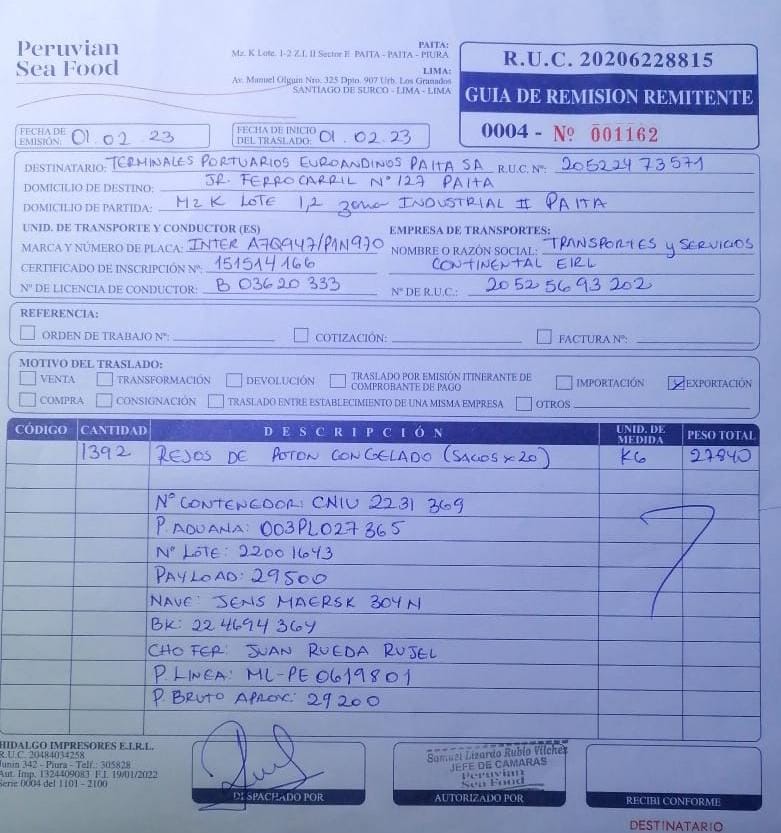 Peruvian
Sea Food
PAITA:
Mz. K Lote. 1-2 Z.I. II Sector E PAITA - PAITA - PIURA
LIMA:
Av. Manuel Olguin Nro. 325 Dpto. 907 Urb. Los Granados
SANTIAGO DE SURCO - LIMA - LIMA
R.U.C. 20206228815
GUIA DE REMISION REMITENTE
0004 - Nº 001162
FECHA DE EMISIÓN: 01.02.23
FECHA DE INICIO DEL TRASLADO: 01.02.23
DESTINATARIO: TERMINALES PORTUARIOS EUROANDINOS PAITA SA R.U.C. Nº: 20522473571
DOMICILIO DE DESTINO: JR. FERROCARRIL Nº 127 PAITA
DOMICILIO DE PARTIDA: Mz K LOTE 1,2 zona INDUSTRIAL II PAITA
UNID. DE TRANSPORTE Y CONDUCTOR (ES)
MARCA Y NÚMERO DE PLACA: INTER A7Q947/P1N970
CERTIFICADO DE INSCRIPCIÓN Nº: 151514166
Nº DE LICENCIA DE CONDUCTOR: B 03620333
EMPRESA DE TRANSPORTES:
NOMBRE O RAZÓN SOCIAL: TRANSPORTES y SERVICIOS
CONTINENTAL EIRL
Nº DE R.U.C.: 20525693202
REFERENCIA:
ORDEN DE TRABAJO Nº: COTIZACIÓN: FACTURA Nº:
MOTIVO DEL TRASLADO:
VENTA TRANSFORMACIÓN DEVOLUCIÓN TRASLADO POR EMISIÓN ITINERANTE DE COMPROBANTE DE PAGO IMPORTACIÓN EXPORTACIÓN
COMPRA CONSIGNACIÓN TRASLADO ENTRE ESTABLECIMIENTO DE UNA MISMA EMPRESA OTROS
CÓDIGO CANTIDAD DESCRIPCIÓN UNID. DE MEDIDA PESO TOTAL
1392 REJOS DE POTON CONGELADO (SACOS x 20) KG 27840
Nº CONTENEDOR: CNIU 2231 369
P. ADUANA: 003PL027365
Nº LOTE: 22001643
PAYLOAD: 29500
NAVE: JENS MAERSK 304N
BK: 224694364
CHOFER: JUAN RUEDA RUJEL
P. LINEA: ML-PE 0619801
P. BRUTO APROX: 29200
HIDALGO IMPRESORES E.I.R.L.
R.U.C. 20484034258
Junin 342 - Piura - Telf.: 305828
Aut. Imp. 1324409083 F.I. 19/01/2022
Serie 0004 del 1101 - 2100
DESPACHADO POR
Samuel Lizardo Rubio Vilchez
JEFE DE CAMARAS
Peruvian
Sea Food
AUTORIZADO POR
RECIBI CONFORME
DESTINATARIO